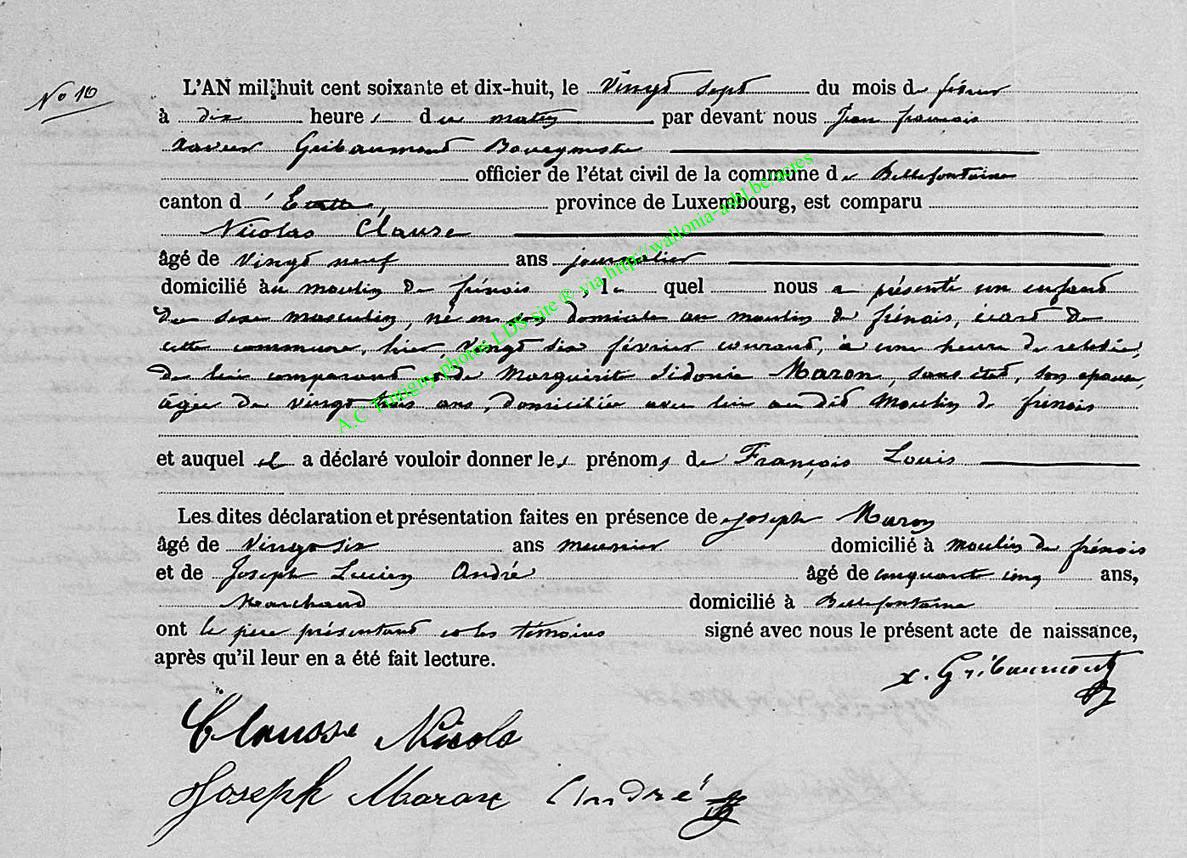 No 10
L'AN mil huit cent soixante et dix-huit, le Vingt sept du mois de février
à dix heures du matin par devant nous Jean françois
Xavier Gribaumont Bourgmestre
officier de l'état civil de la commune de Bellefontaine
canton d'Etalle, province de Luxembourg, est comparu
Nicolas Clausse
âgé de Vingt neuf ans journalier
domicilié au moulin de frénois, le quel nous a présenté un enfant
du sexe masculin, né en son domicile au moulin de frénois, écart de
cette commune, hier vingt six février courant, à une heure de relevée,
de lui comparant et de Marguerite Sidonie Maron, sans état, son épouse,
âgée de vingt trois ans, domiciliée avec lui au dit Moulin de frenois
et auquel il a déclaré vouloir donner les prénoms de François Louis
Les dites déclaration et présentation faites en présence de Joseph Maron
âgé de Vingt six ans meunier domicilié à moulin de frénois
et de Joseph Lucien André âgé de cinquante cinq ans,
Marchand domicilié à Bellefontaine
ont le père présentant et les témoins signé avec nous le présent acte de naissance,
après qu'il leur en a été fait lecture.
x. Gribaumont
Clausse Nicolas
Joseph Maron André
A.C. Tintigny photos LDS site ® via http://wallonia-asbl.be/actes